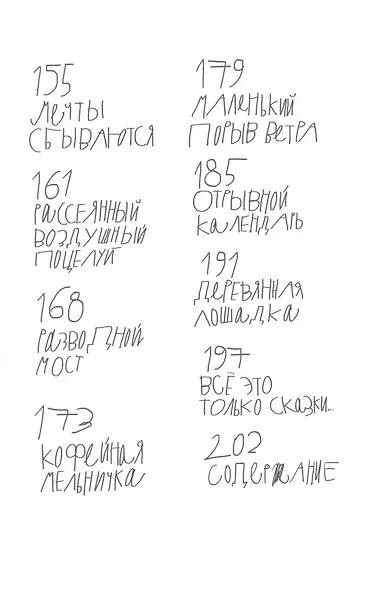 155
мечты
сбываются
161
рассеянный
воздушный
поцелуй
168
разводной
мост
173
кофейная
мельничка
179
маленький
порыв ветра
185
отрывной
календарь
191
деревянная
лошадка
197
всё это
только сказки...
202
содержание